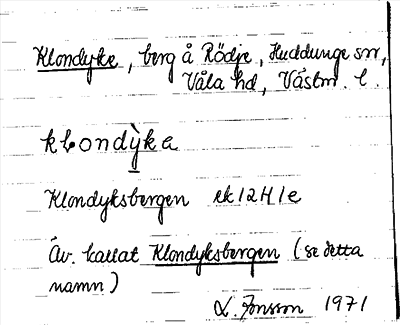 Klondyke, berg å Rödje, Huddunge sn,
Våla hd, Västm. l.
klondỳka
Klondyksbergen ek 12H1e
Äv. kallat Klondyksbergen (se detta
namn)
L. Jonsson 1971